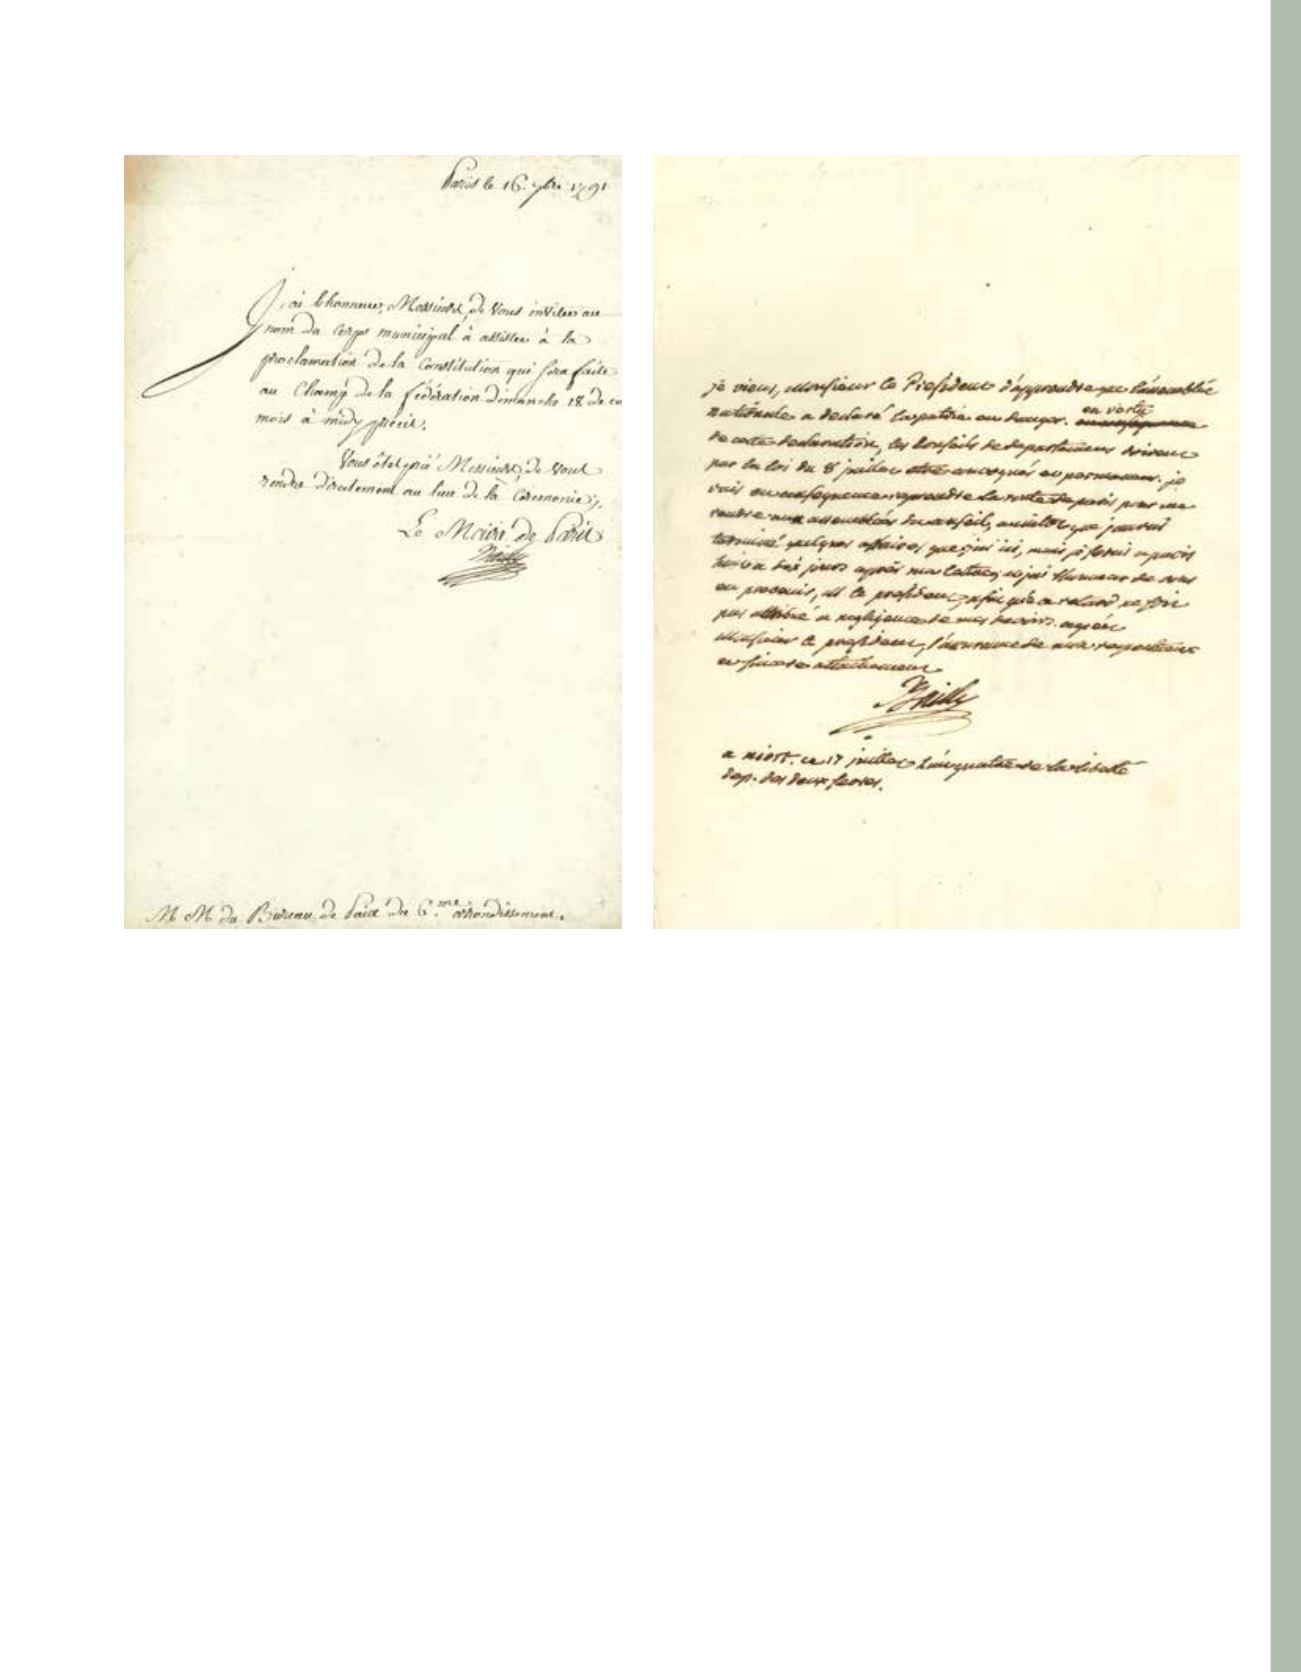 Paris le 16. 7bre 1791
J'ai l'honneur, Messieurs, de vous inviter au
nom du corps municipal à assister à la
proclamation de la Constitution qui sera faite
au Champ de la fédération dimanche 18 de ce
mois à midy précis.
Vous êtes prié Messieurs, de vous
rendre directement au lieu de la Cérémonie.
Le Maire de Paris
Bailly
M M du Bureau de Paix du 6.me arrondissement.
je viens, monsieur le President d'apprendre que l'assemblée
nationale a declaré la patrie en danger. en vertu
de cette declaration, les Conseils de departemens doivent
par la loi du 8 juillet etre convoqués en permanence. je
vais en consequence reprendre la route de paris pour me
rendre aux assemblées du conseil, aussitot que j'aurai
terminé quelques affaires que j'ai ici, mais je serai a paris
huit a dix jours après ma lettre, et j'ai l'honneur de vous
en prevenir, M le president, afin que ce retard ne soit
pas attribué a negligence de mes devoirs. agréez
Monsieur le president, l'assurance de mon respectueux
et sincere attachement
Bailly
a niort. ce 17 juillet l'an quatre de la liberté
dep. des deux sevres.